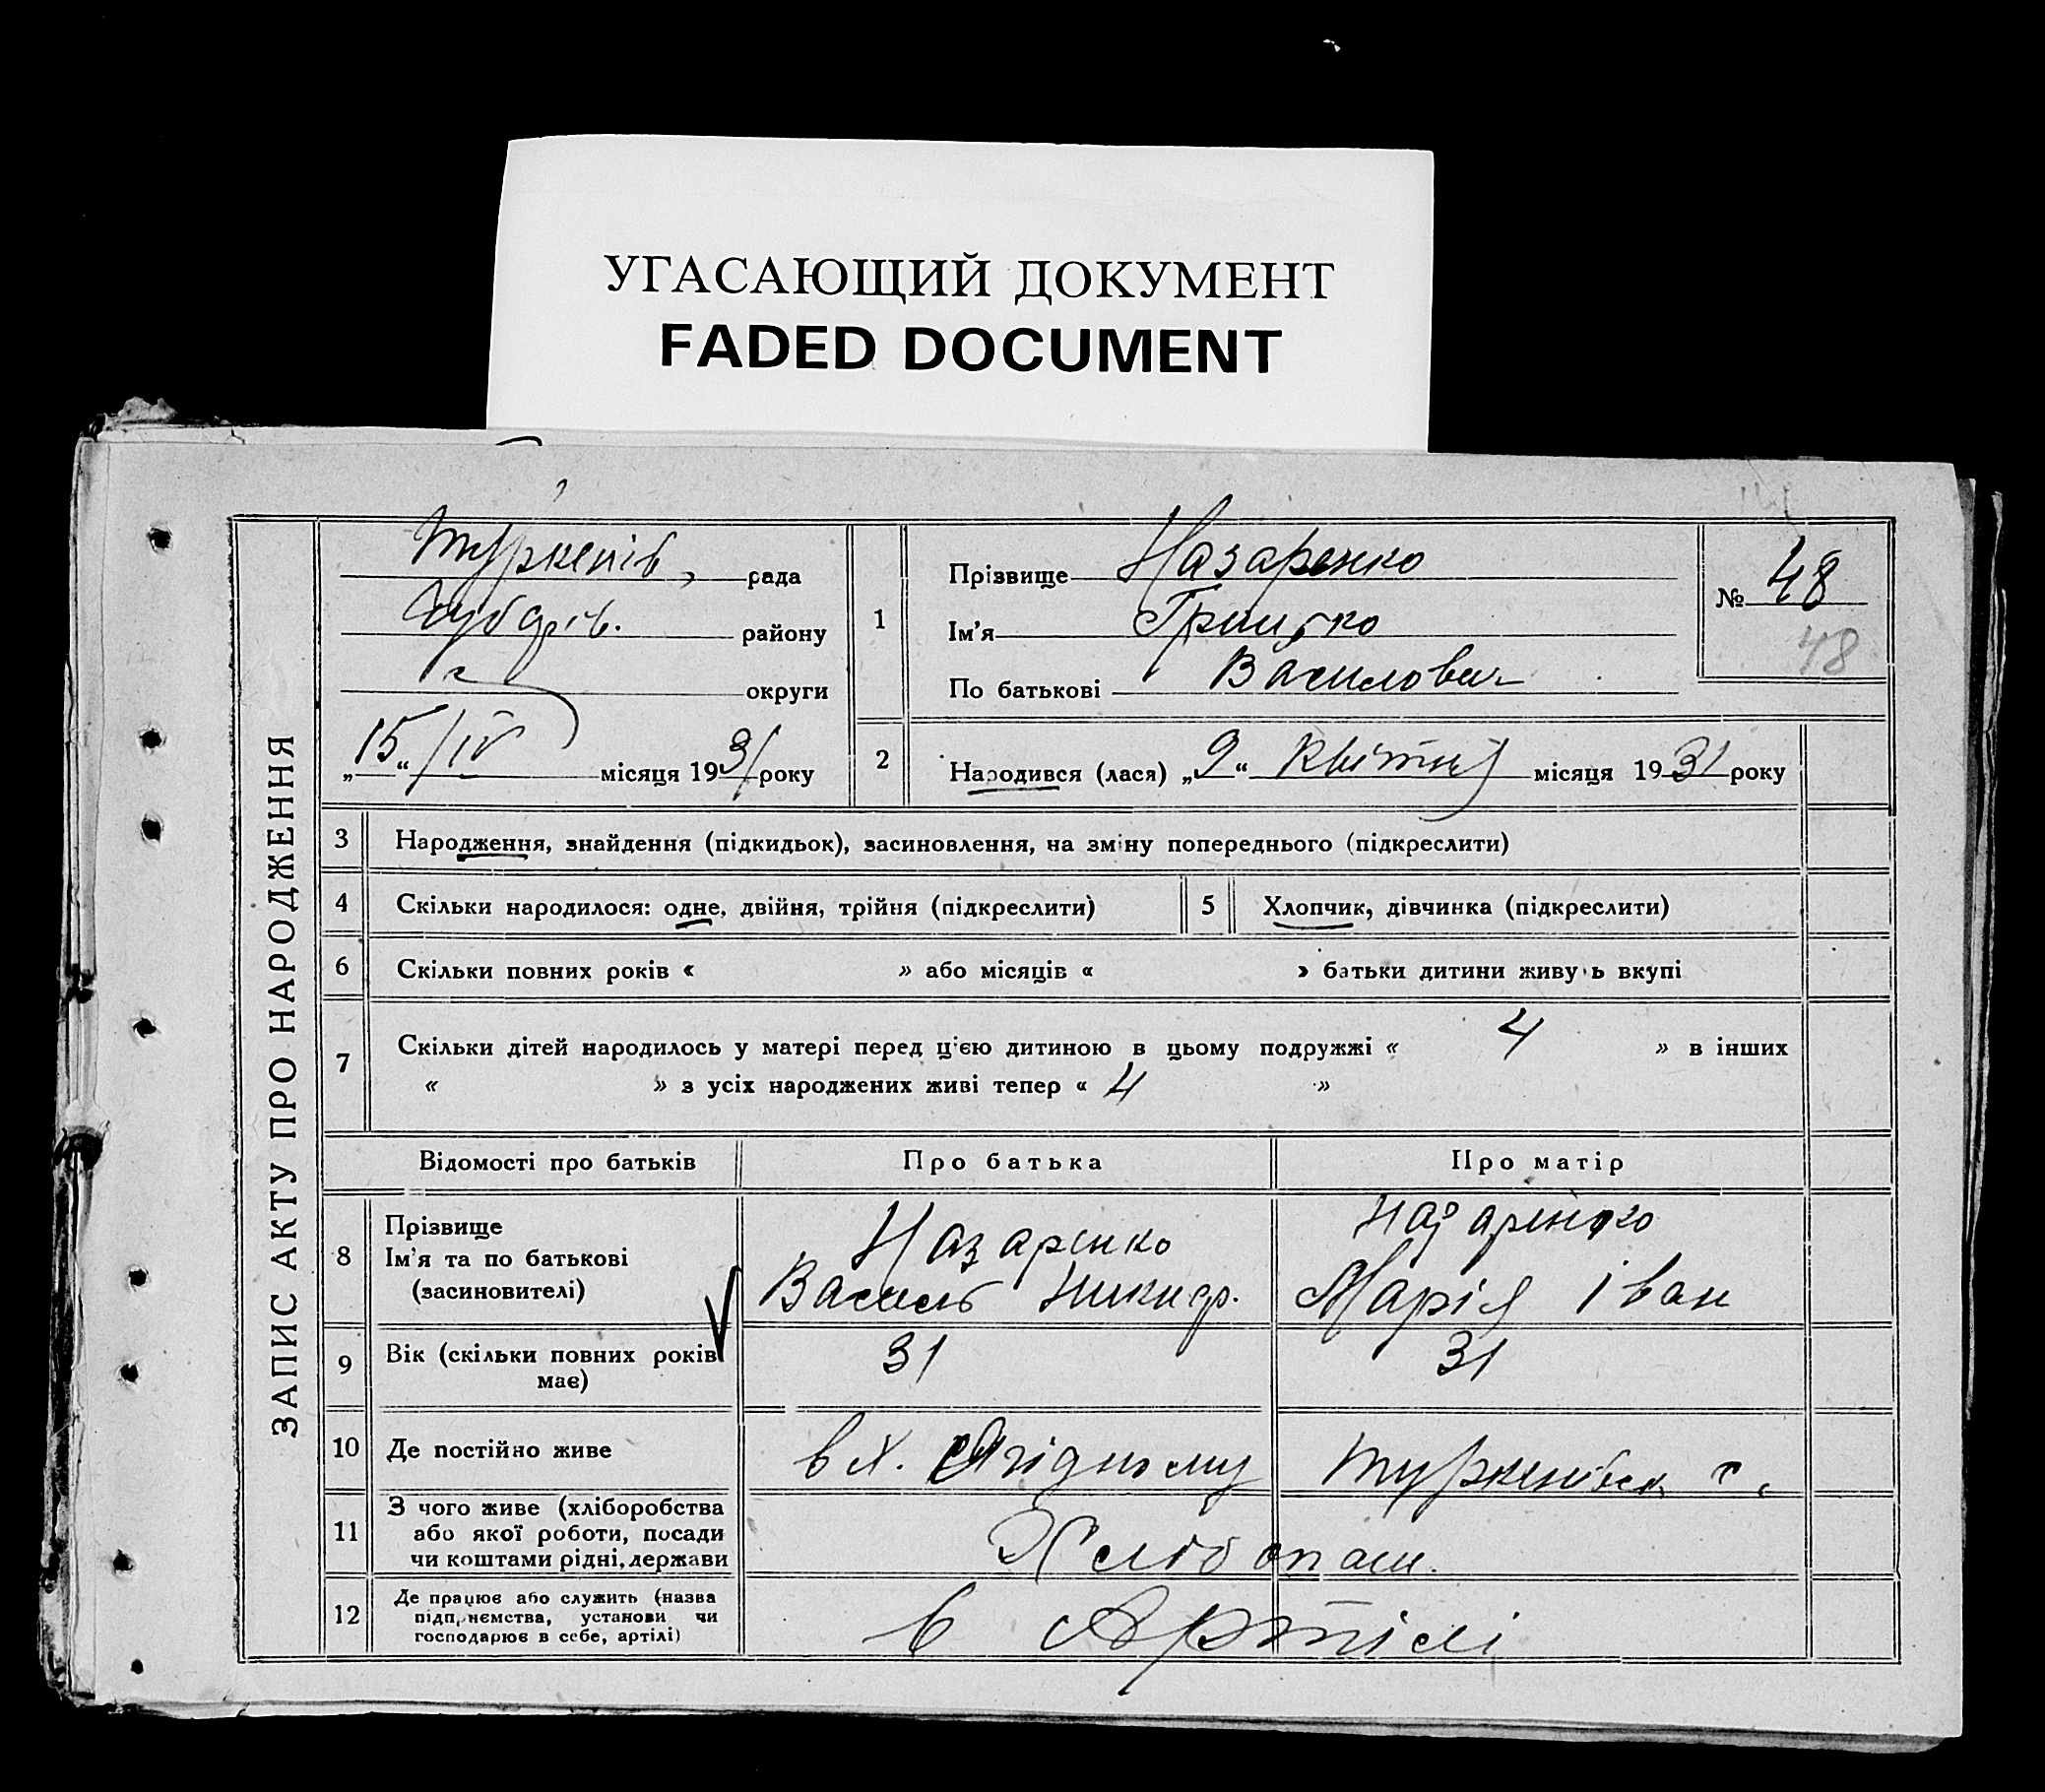 УГАСАЮЩИЙ ДОКУМЕНТ
FADED DOCUMENT
ЗАПИС АКТУ ПРО НАРОДЖЕННЯ
Туркенів, рада
району
округи
„15“ /IV місяця 1931 року
1
Прізвище Назаренко
Ім'я Грицько
По батькові Василович
№ 48
48
2
Народився (лася) „9“ квітня місяця 1931 року
3 Народження, знайдення (підкидьок), засиновлення, на зміну попереднього (підкреслити)
4 Скільки народилося: одне, двійня, трійня (підкреслити)
5 Хлопчик, дівчинка (підкреслити)
6 Скільки повних років « » або місяців « » батьки дитини живуть вкупі
7 Скільки дітей народилось у матері перед цією дитиною в цьому подружжі « 4 » в інших
« » з усіх народжених живі тепер « 4 »
Відомості про батьків Про батька Про матір
8 Прізвище
Ім'я та по батькові
(засиновителі)
Назаренко
Василь Никидр.
Назаренко
Марія Іван
9 Вік (скільки повних років
має)
31
31
10 Де постійно живе
в х. Ягідному
Туркенівск с.
11 З чого живе (хліборобства
або якої роботи, посади
чи коштами рідні, держави
Хлібопаш.
12 Де працює або служить (назва
підприємства, установи чи
господарює в себе, артілі)
в Артілі